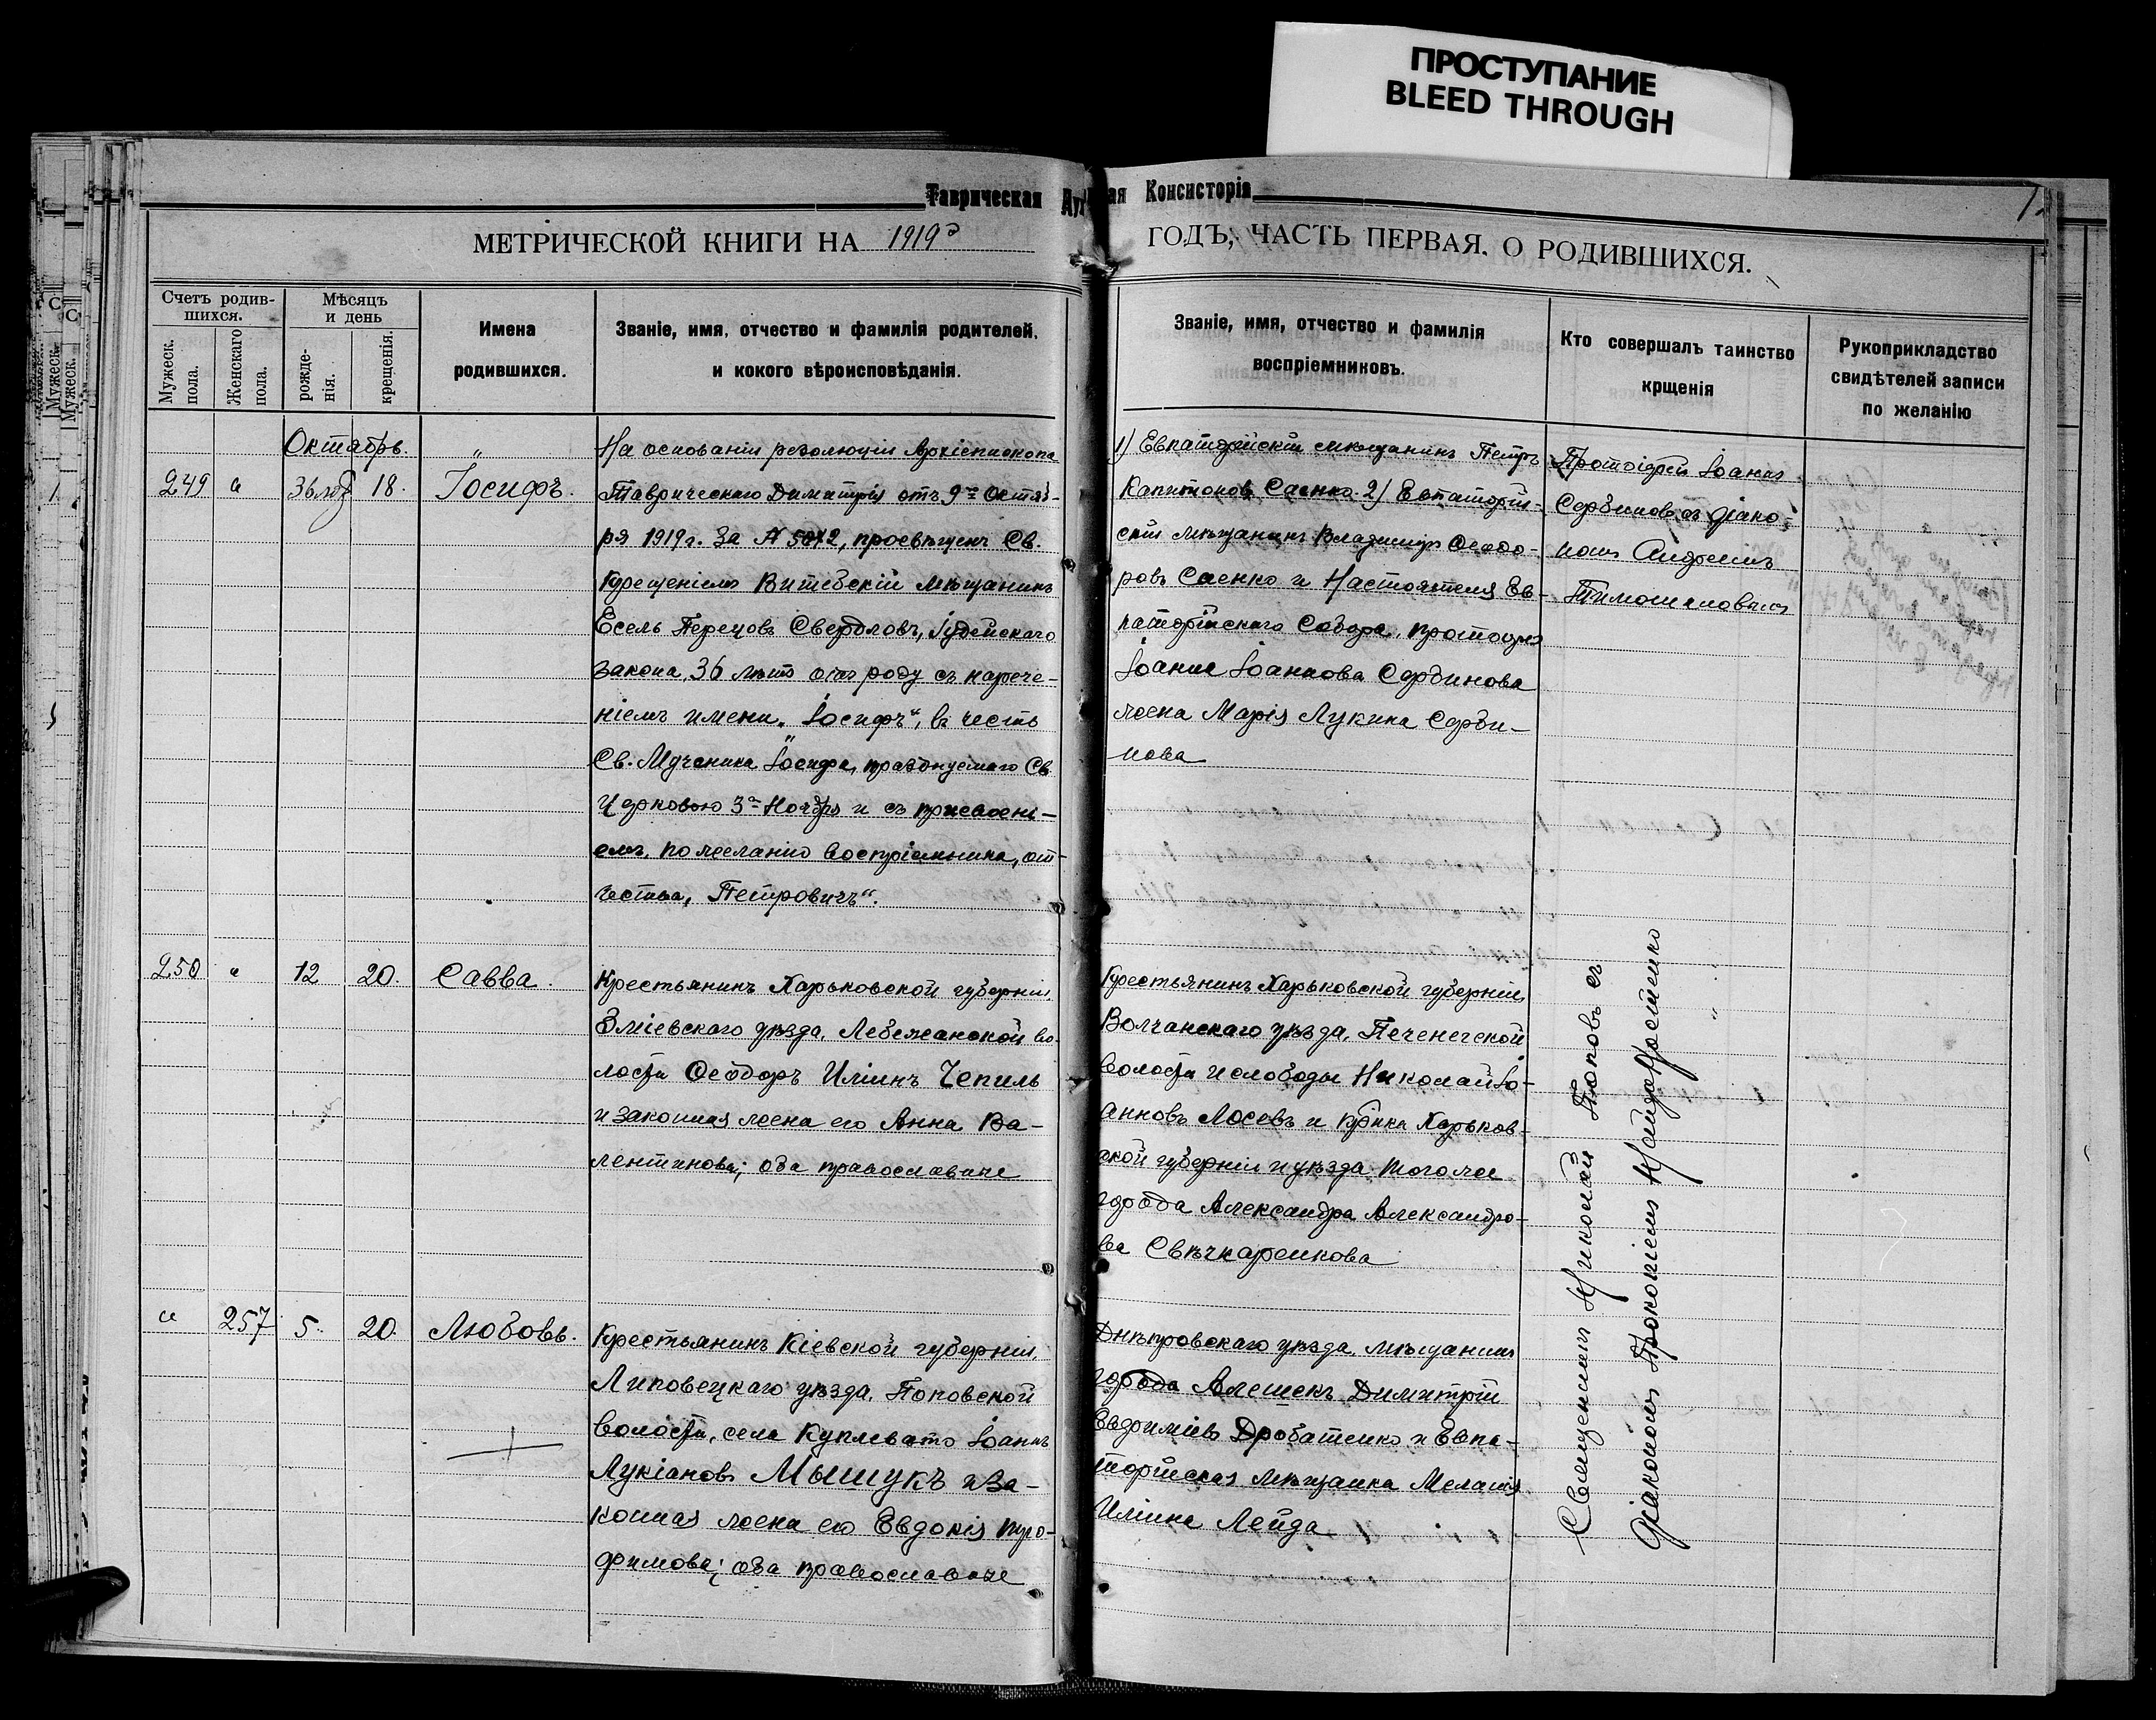 ПРОСТУПАНИЕ
BLEED THROUGH
Таврическая Консисторія
МЕТРИЧЕСКОЙ КНИГИ НА 1919 ГОДЪ, ЧАСТЬ ПЕРВАЯ, О РОДИВШИХСЯ.
Счетъ родив-
шихся.
Мужеск.
пола.
Женскаго
пола.
Мѣсяцъ
и день
рожде-
нія.
крещенія.
Имена
родившихся.
Званіе, имя, отчество и фамилія родителей,
и кокого вѣроисповѣданія.
Званіе, имя, отчество и фамилія
воспріемниковъ.
Кто совершалъ таинство
крщенія
Рукоприкладство
свидѣтелей записи
по желанію
Октябрь.
249 " 18. Іосифъ.
На основаніи резолюціи Архіепископа
Таврическаго Димитрія отъ 9го Октяб-
ря 1919 г. за № просвѣщенъ Св.
Крещеніемъ Витебскій мѣщанинъ
Есель Перецовъ Свердловъ, Іудейскаго
закона, 36 лѣтъ отъ роду съ нарече-
ніемъ имени „Іосифъ“, въ честь
Св. Мученика Іосифа, празднуемаго Св.
Церковью 3го Ноября и съ присвоені-
емъ, по желанію воспріемника, от-
чества, Петровичъ“.
1) Евпаторійскій мѣщанинъ Петръ
Капитоновъ Саенко 2) Евпаторій-
скій мѣщанинъ Владимиръ Ѳеодо-
ровъ Саенко и Настоятеля Ев-
паторійскаго Собора, протоіерея
Іоанна Іоаннова Сербинова
жена Марія Лукина Серби-
нова
Протоіерей Іоаннъ
Сербиновъ съ діако-
номъ Андреемъ
Тимошиловымъ
250 " 12 20. Савва.
Крестьянинъ Харьковской губерніи,
Зміевскаго уѣзда, Лебежанской во-
лости Ѳеодоръ Иліинъ Чепиль
и законная жена его Анна Ва-
лентинова; оба православные
Крестьянинъ Харьковской губерніи,
Волчанскаго уѣзда, Печенегской
волости и слободы Николай Іо-
анновъ Лосевъ и Харьков-
ской губерніи и уѣзда, того же
города Александра Александро-
ва Свѣчкаренкова
Священникъ Николай Поповъ съ
діакономъ Прокопіемъ
" 257 5. 20. Любовь.
Крестьянинъ Кіевской губерніи,
Липовецкаго уѣзда, Поповской
волости, села Куплевато Іоаннъ
Лукіановъ Мышукъ и за-
конная жена его Евдокія Тро-
фимова; оба православные
Днѣпровскаго уѣзда, мѣщанинъ
города Алешекъ Димитрій
Евфиміевъ Дробатенко и Евпа-
торійская мѣщанка Меланія
Иліина Лейда